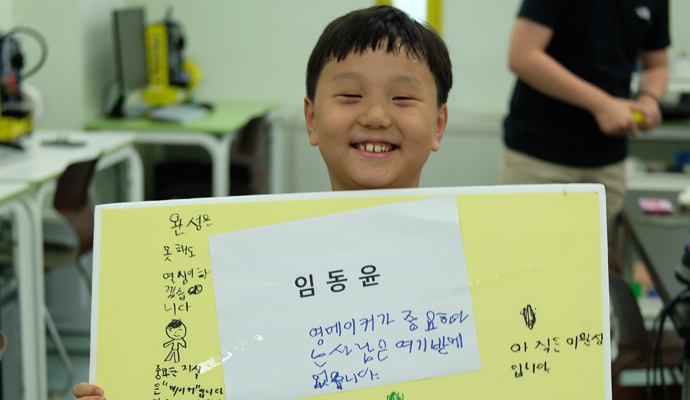 완성은
못해도
열심히 하
겠습
니다
중요한 지식
은 "메이커"입니다
임동윤
영메이커가 중요하다
는 사람은 여기밖에
없습니다.
아직은 미완성
입니다